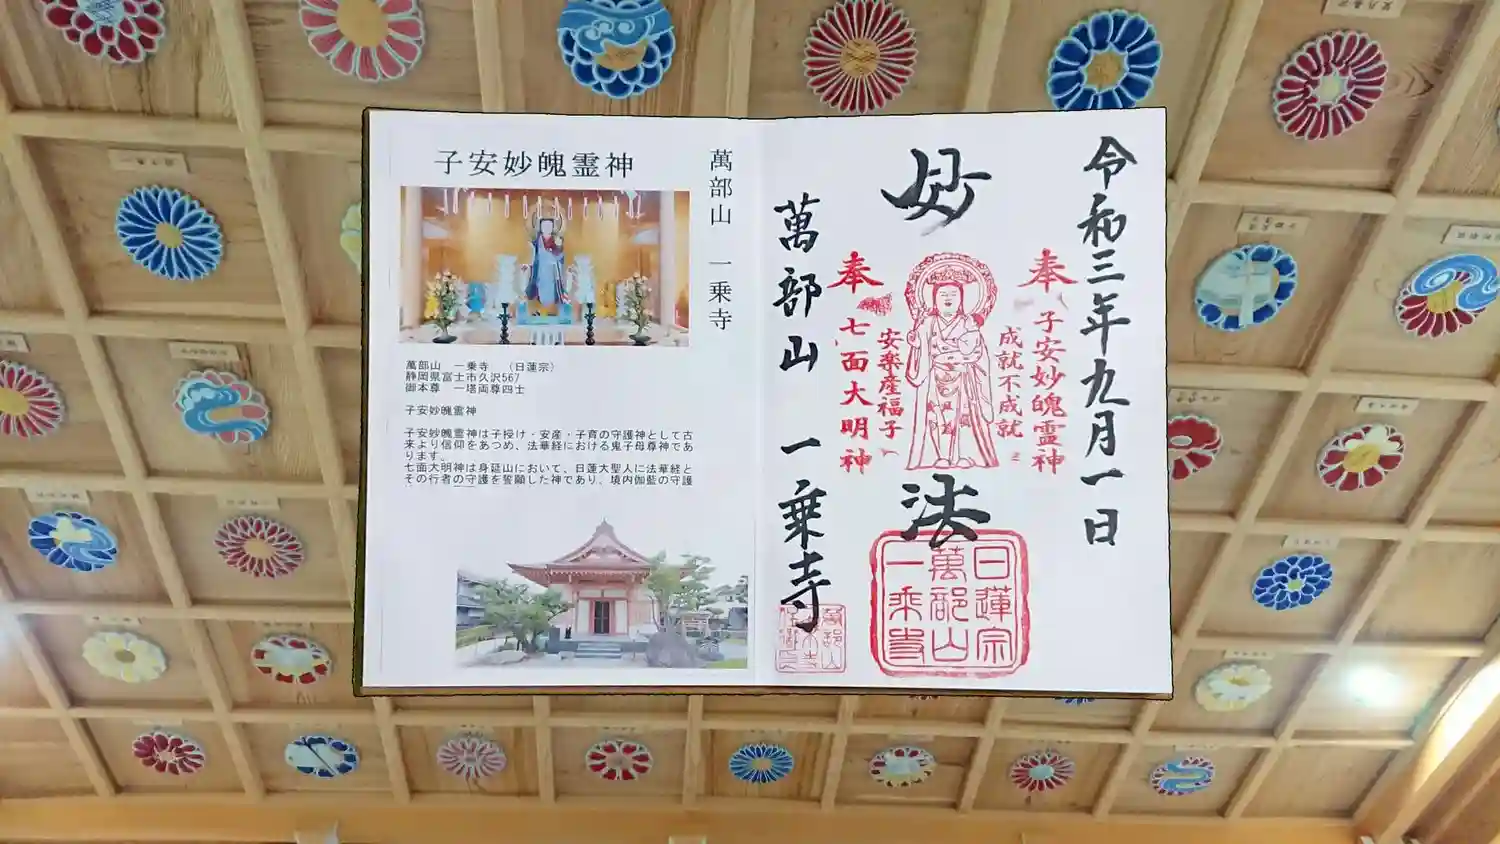 子安妙魄霊神
萬部山 一乗寺
萬部山 一乗寺 (日蓮宗)
静岡県富士市久沢567
御本尊 一塔両尊四士
子安妙魄霊神
子安妙魄霊神は子授け・安産・子育の守護神として古
来より信仰をあつめ、法華経における鬼子母尊神であ
ります。
七面大明神は身延山において、日蓮大聖人に法華経と
その行者の守護を誓願した神であり、境内伽藍の守護
令和三年九月一日
奉 子安妙魄霊神
成就不成就
妙法
安楽産福子
奉 七面大明神
萬部山 一乗寺
日蓮宗
萬部山
一乗寺